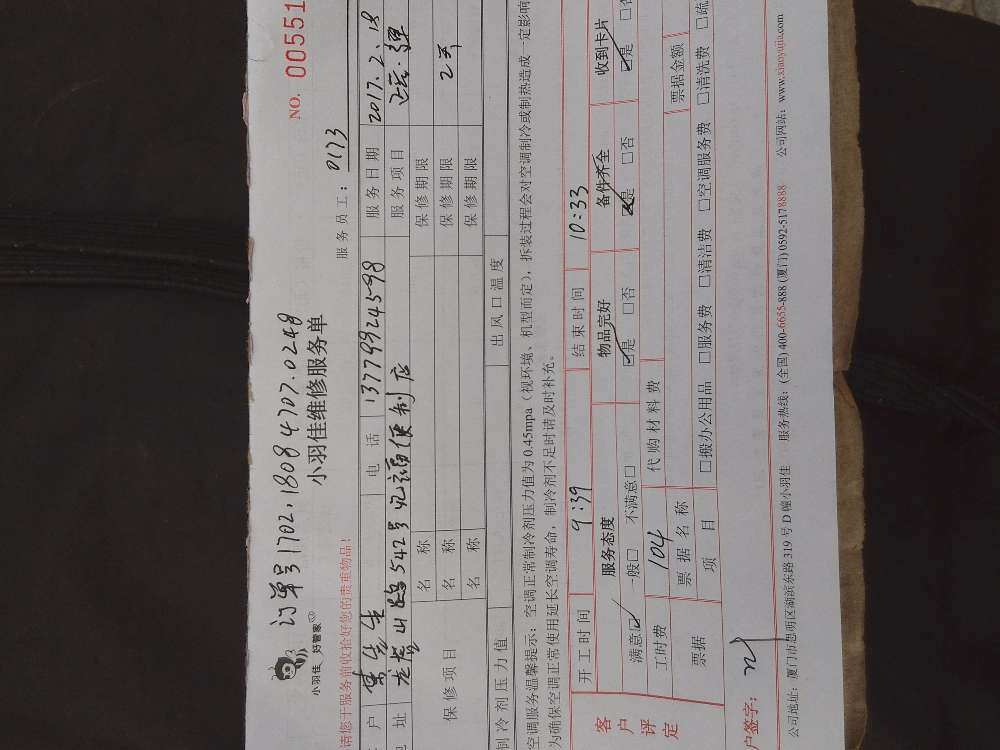 订单号1702.18084707.0248
NO. 00551
小羽佳 好管家
小羽佳维修服务单
请您于服务前收拾好您的贵重物品!
服务员工: 0173
户 先生 电话 13779924598 服务日期 2017.2.18
址 龙 山路542号 福便利店 服务项目
保修项目 名称 保修期限
名称 保修期限
名称 保修期限
制冷剂压力值 出风口温度
空调服务温馨提示:空调正常制冷剂压力值为0.45mpa(视环境、机型而定),拆装过程会对空调制冷或制热造成一定影响
为确保空调正常使用延长空调寿命,制冷剂不足时请及时补充。
开工时间 9:39 结束时间 10:33
客户评定 服务态度 物品完好 备件齐全 收到卡片
满意☑ 一般□ 不满意□ ☑是 □否 ☑是 □否 ☑是 □否
工时费 104 代购材料费
票据 票据名称 票据金额
项目 □搬办公用品 □服务费 □清洁费 □空调服务费 □清洗费 □疏
户签字:
公司地址:厦门市思明区湖滨东路319号D幢小羽佳 服务热线:(全国)400-6655-888 (厦门)0592-5178888 公司网站:www.xiaoyujia.com